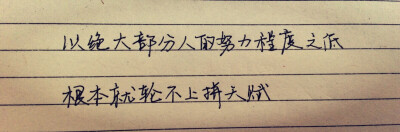 以绝大部分人的努力程度之低
根本就轮不上拼天赋